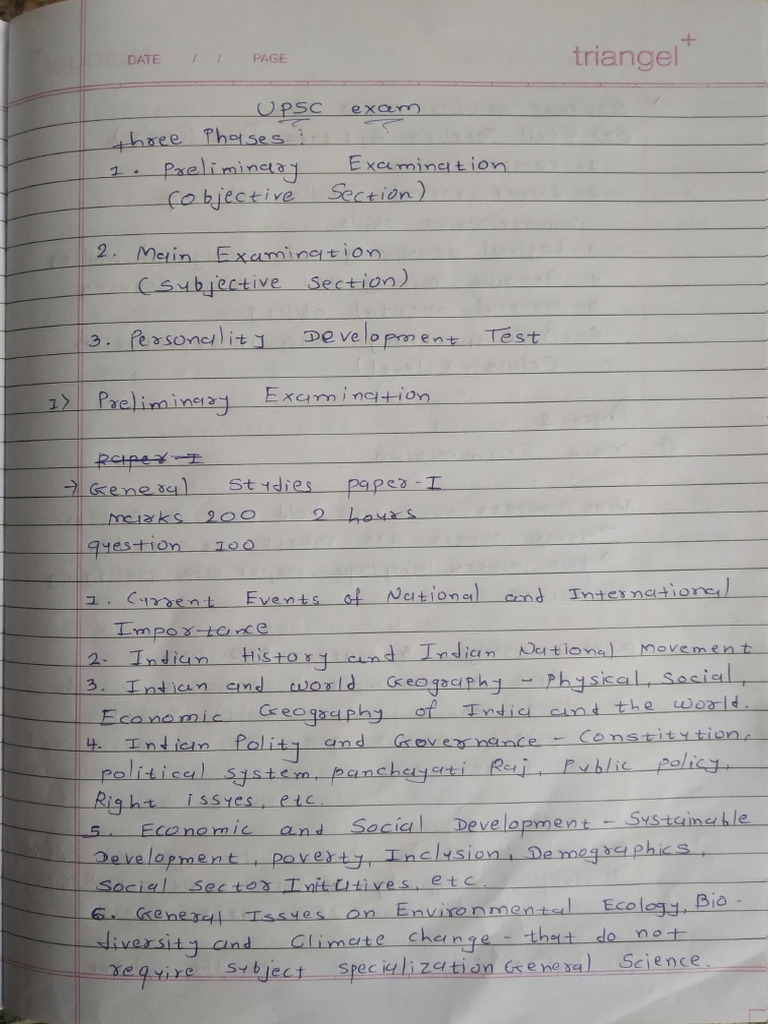 DATE / / PAGE
triangel+
UPSC exam
three Phases:
1. Preliminary Examination
(Objective Section)
2. Main Examination
(Subjective Section)
3. Personality Development Test
I> Preliminary Examination
Paper-I
→ General Studies paper-I
marks 200 2 hours
question 100
1. Current Events of National and International
Importance
2. Indian History and Indian National Movement
3. Indian and world Geography - Physical, Social,
Economic Geography of India and the world.
4. Indian Polity and Governance - Constitution,
political system, panchayati Raj, Public policy,
Right issyes, etc.
5. Economic and Social Development - Sustainable
Development, poverty, Inclusion, Demographics,
Social Sector Inititives, etc.
6. General Issues on Environmental Ecology, Bio-
diversity and Climate change - that do not
require subject specialization General Science.